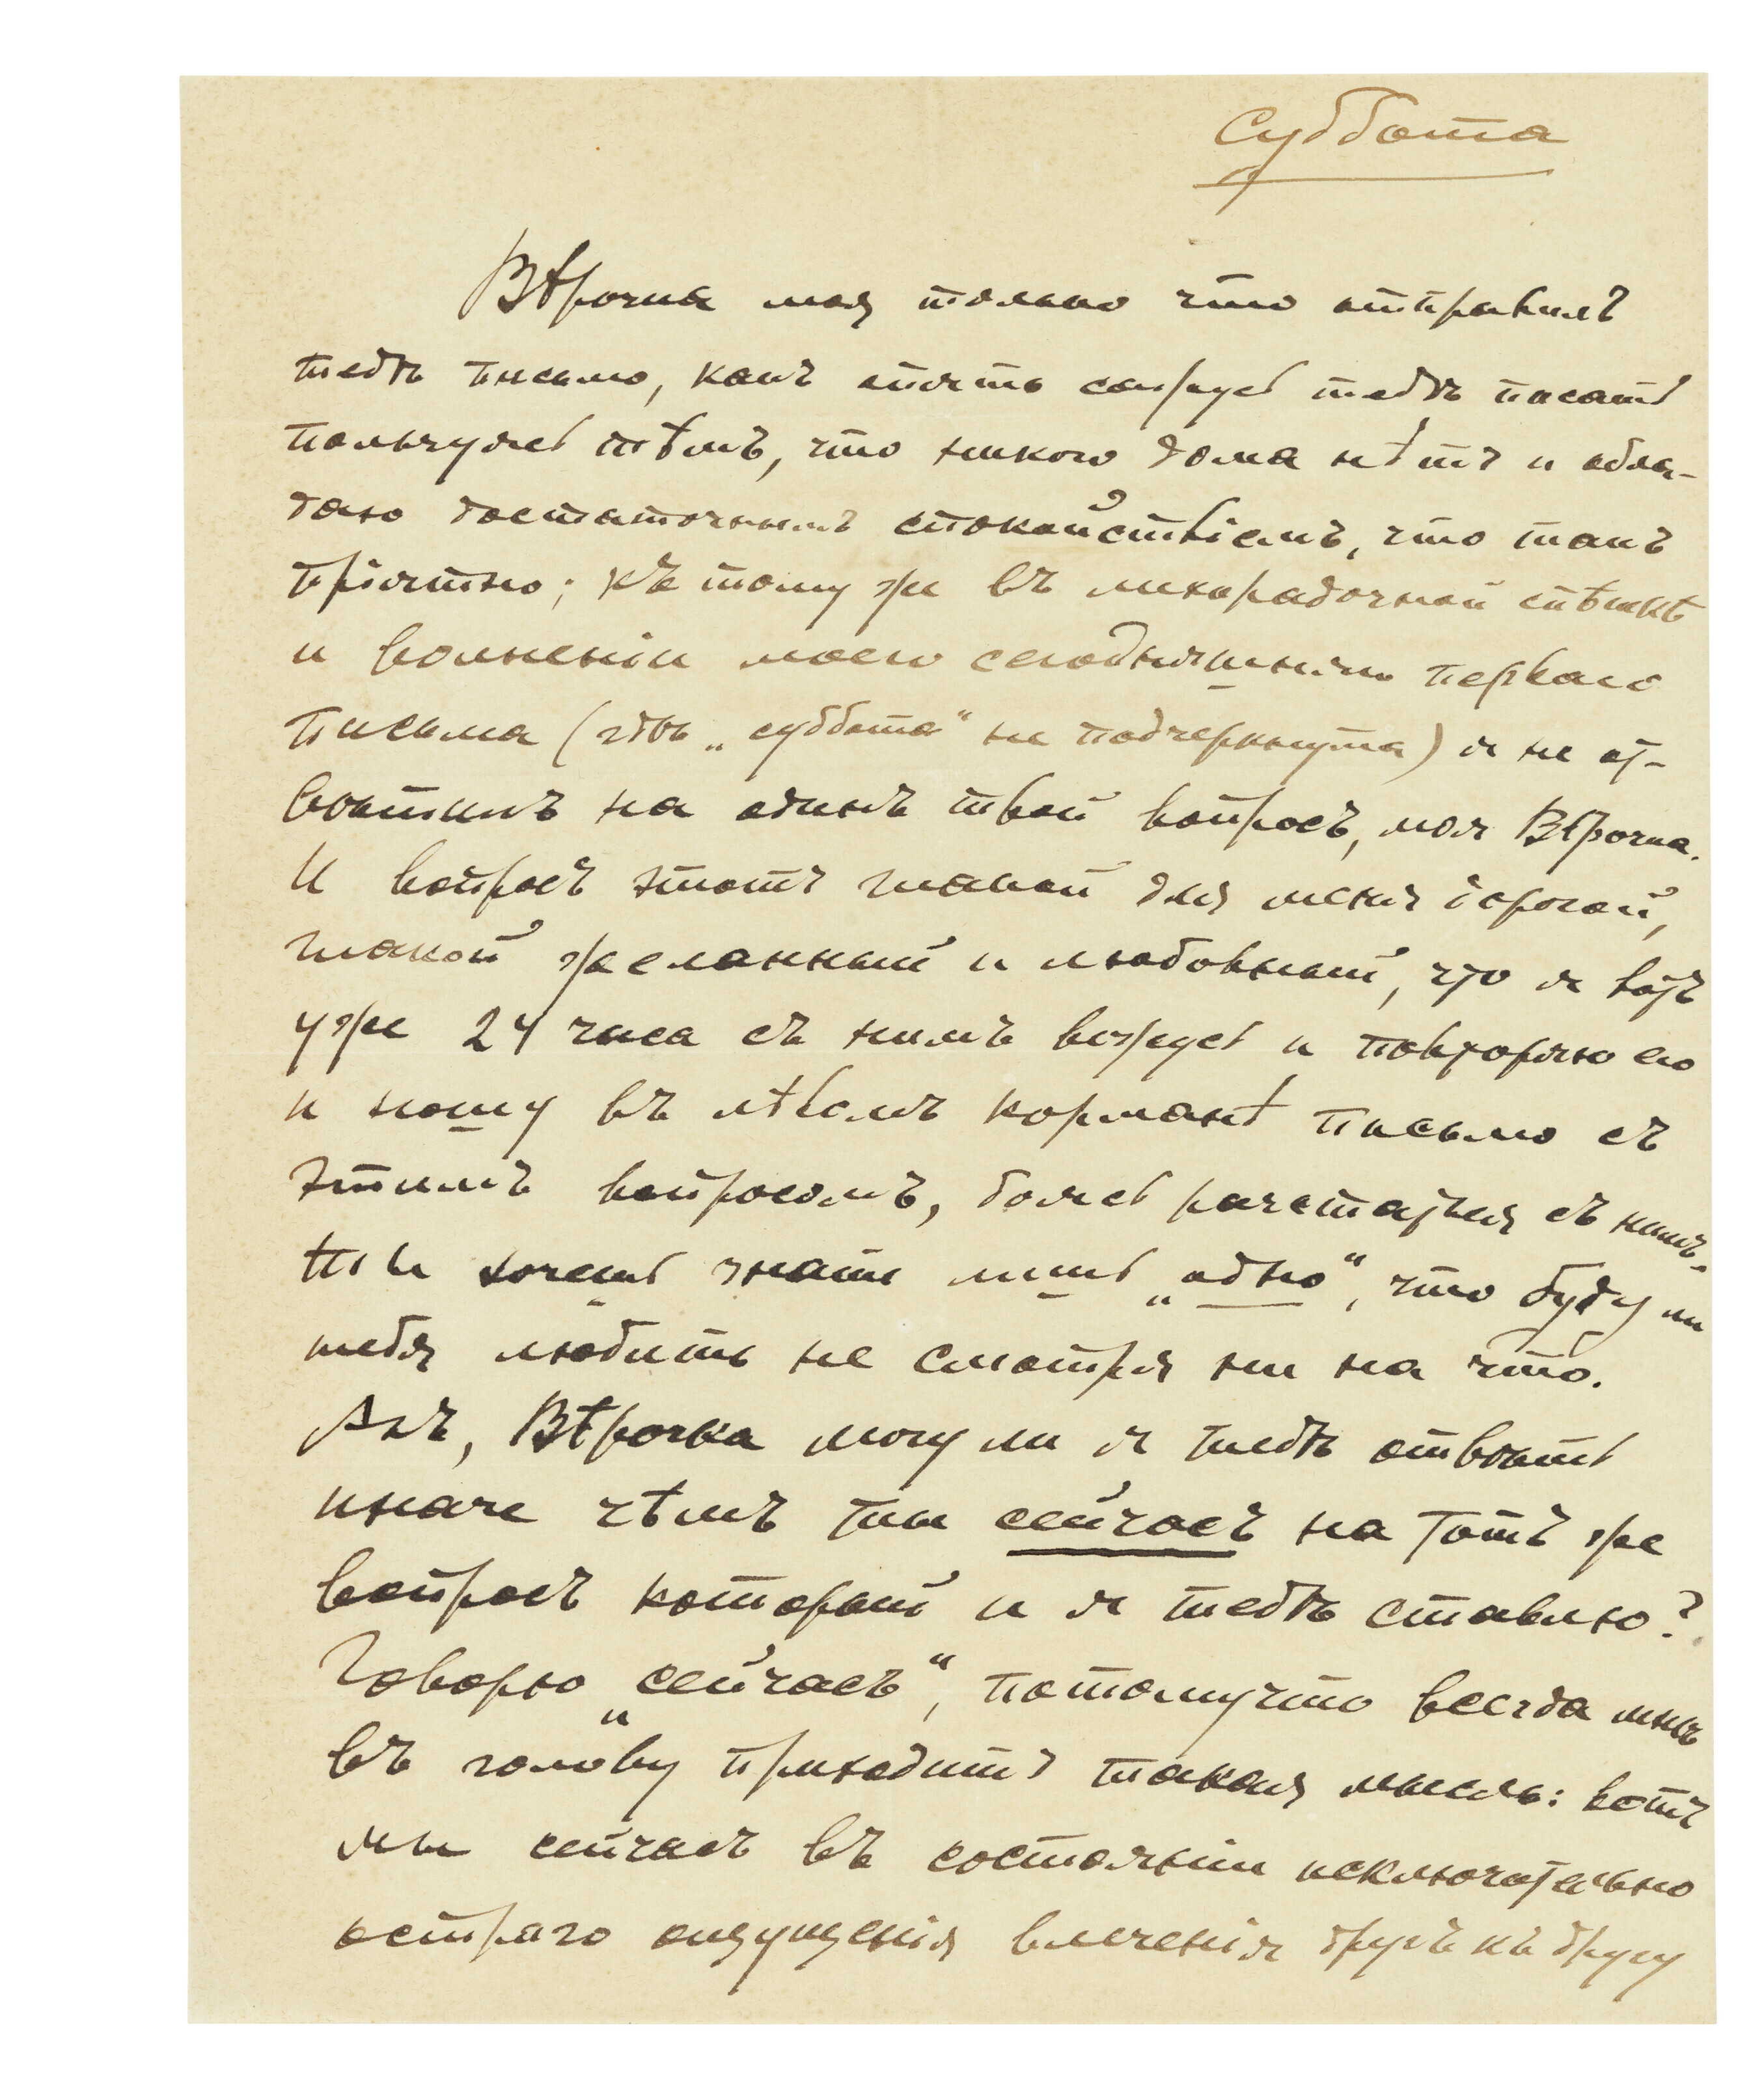 Суббота
Вѣрочка моя только что отправилъ
тебѣ письмо, какъ опять сажусь тебѣ писать
пользуясь тѣмъ, что никого дома нѣтъ и обла-
даю достаточнымъ спокойствіемъ, что такъ
пріятно; къ тому же въ лихорадочной спѣшкѣ
и волненіи моего сегодняшняго перваго
письма (гдѣ „суббота“ не подчеркнута) я не от-
вѣтилъ на одинъ твой вопросъ, моя Вѣрочка.
И вопросъ этотъ такой для меня дорогой,
такой желанный и любовный, что я вотъ
уже 24 часа съ нимъ вожусь и повторяю его
и ношу въ лѣвомъ карманѣ письмо съ
этимъ вопросомъ, боясь разстаться съ нимъ.
Ты хочешь знать лишь „одно“, что буду ли
тебя любить не смотря ни на что.
Ахъ, Вѣрочка могу ли я тебѣ отвѣтить
иначе чѣмъ ты сейчасъ на тотъ же
вопросъ который и я тебѣ ставлю?
Говорю „сейчасъ“, потомучто всегда мнѣ
въ голову приходитъ такая мысль: вотъ
мы сейчасъ въ состояніи исключательно
остраго ощущенія влеченія другъ къ другу